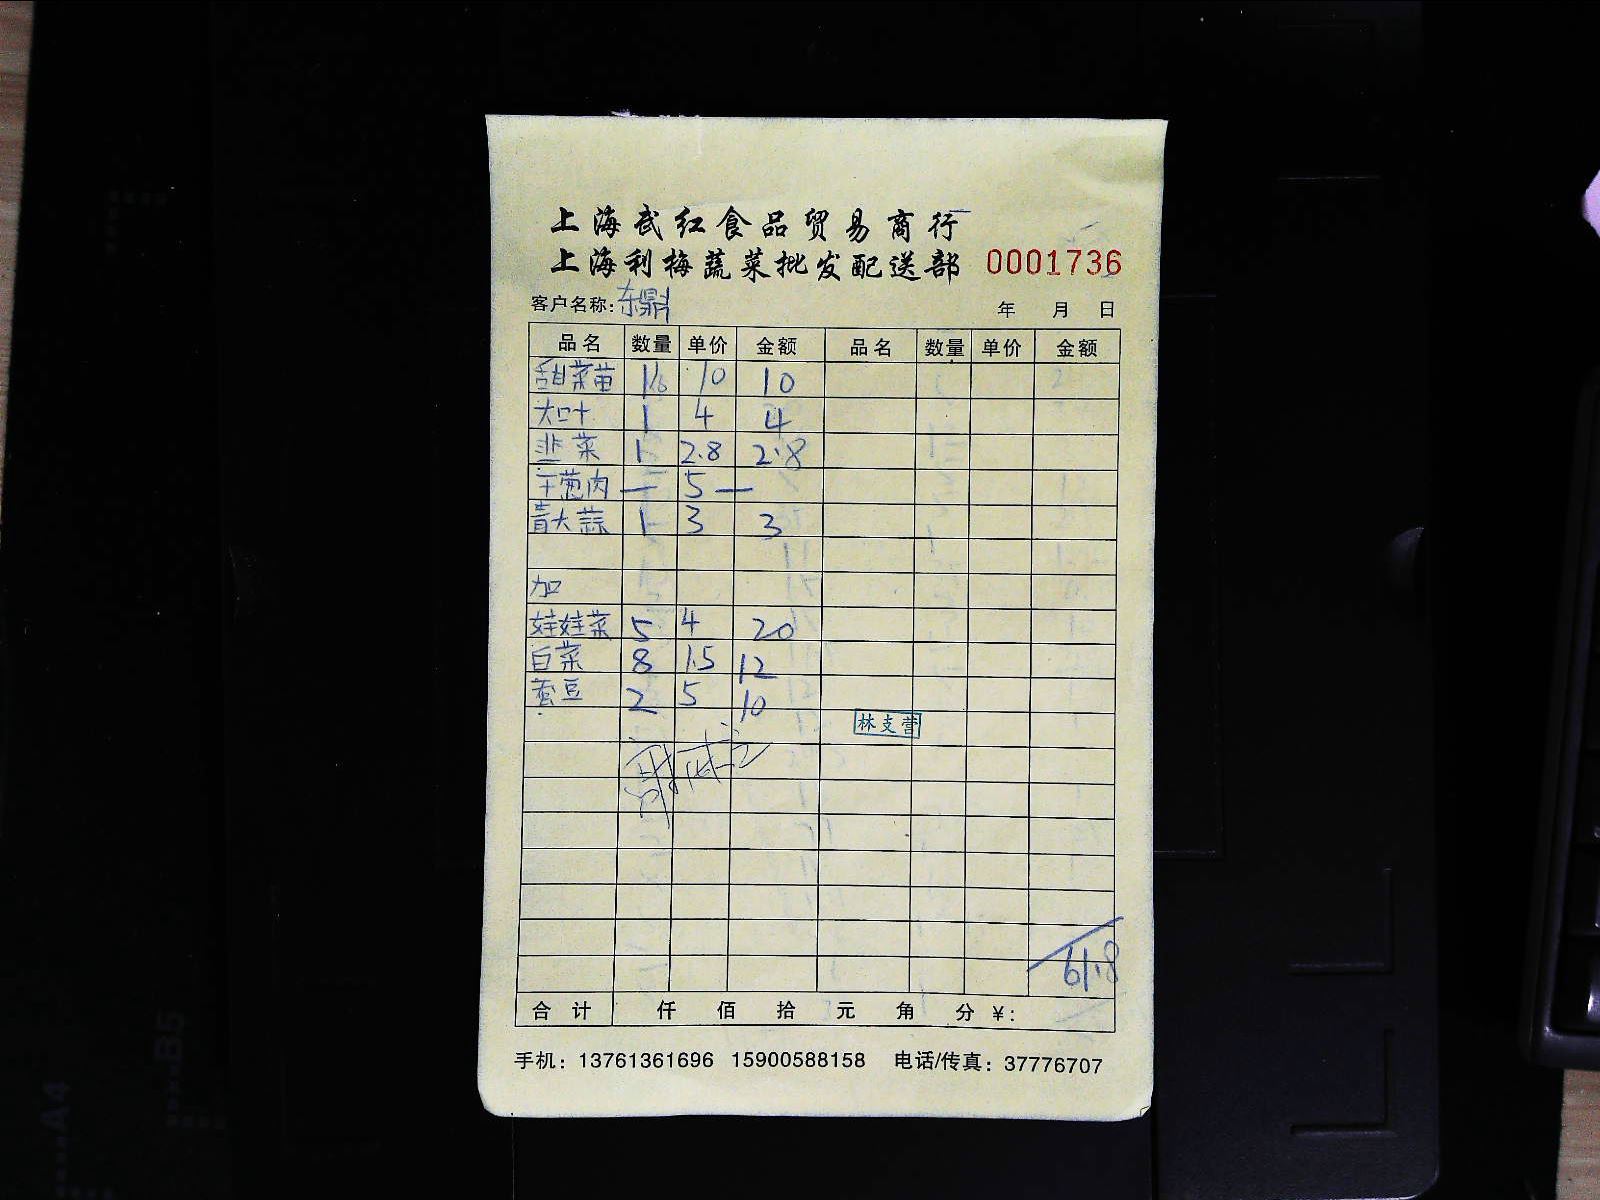 上海武红食品贸易商行
上海利梅蔬菜批发配送部 0001736
客户名称:东鼎 年 月 日
品名 数量 单价 金额 品名 数量 单价 金额
甜菜苗 10 10
大叶 1 4 4
韭菜 1 2.8 2.8
干葱肉 — 5 —
青大蒜 1 3 3
加
娃娃菜 5 4 20
白菜 8 1.5 12
蚕豆 2 5 10
林支营
61.8
合计 仟 佰 拾 元 角 分 ¥:
手机: 13761361696 15900588158 电话/传真: 37776707